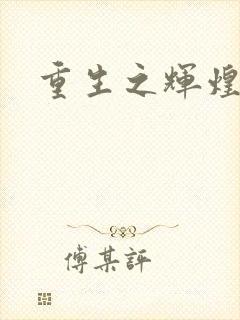 重生之輝煌
傅某評